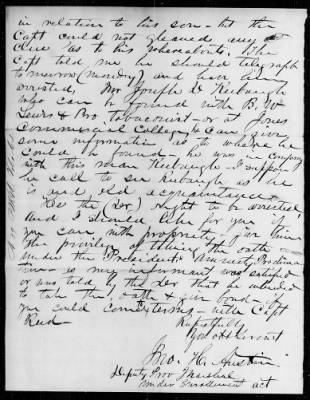 in relation to his son - but the
Capt could not gleaned any
Clue as to his whereabouts. The
Capt told me he should telegraph
tomorrow (monday) and have him
arrested, Mr Joseph D Keebaugh
who can be found with B. W
Lewis & Bro. tobacconist - or at Jones
Commercial College can give
some information as to where he
could be found - he was in Company
with this man Keebaugh - I suppose
he call to see Kebaugh as he
is and old acquaintance
the (Dr) ought to be arrested
And I should like for you if
you can with propriety - give him
the privilege of taking the oath -
under the Presidents Amnesty Proclama
tion - as my informant was satisfied
or was told by the Dr that he intended
to take the oath & give bond - if
you could come terms - with Capt
Reed
Respectfully
Your obt Servant
Jno. H. Austin
Deputy Prov Marshal
under Enrollment act